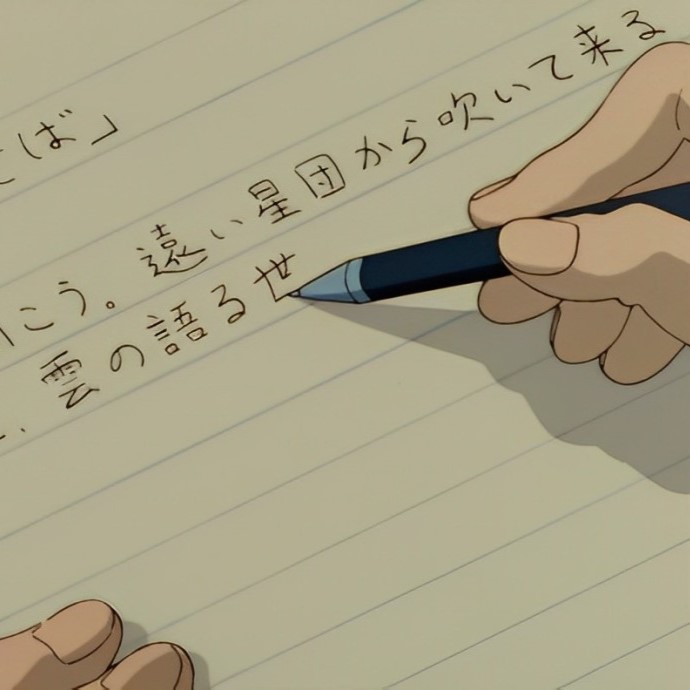 ば」
こう。遠い星団から吹いて来る
雲の語る世